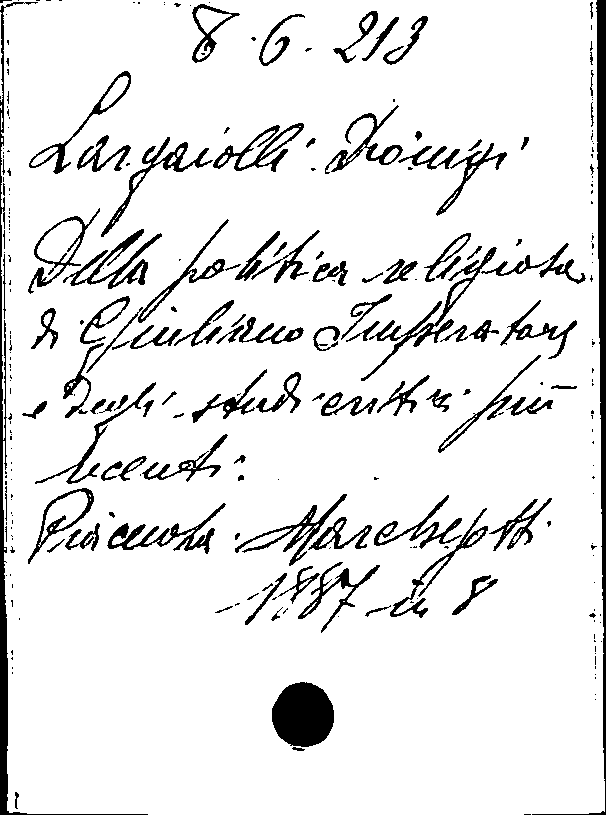 8. 6. 213
Largaiolli Dionigi
Della politica religiosa
di Giuliano Imperatore
e degli studi critici più
recenti.
Piacenza. Marchesotti.
1887 in 8